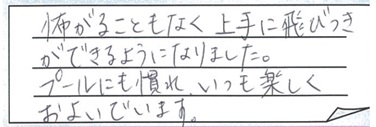 怖がることもなく上手に飛びつき
ができるようになりました。
プールにも慣れ、いつも楽しく
およいでいます。